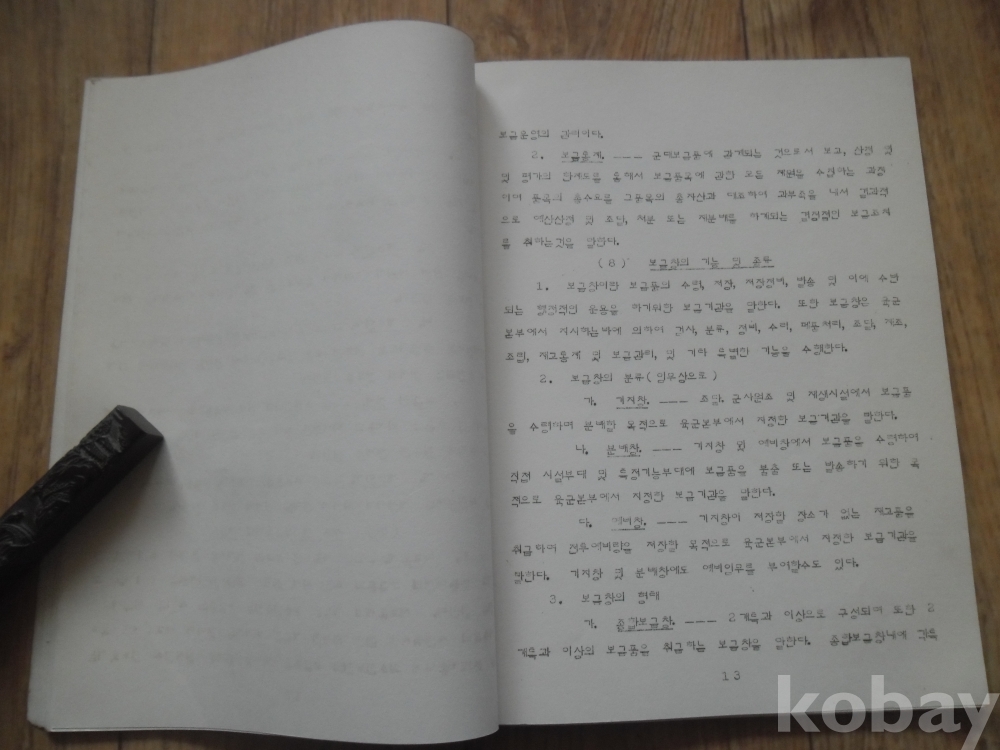 보급품인의 관이이다.
2. 보급통제. --- 군대보급품에 관계되는 것으로서 보고, 산정 및
및 평가의 한제도를 통해서 보급품목에 관한 모든 제원을 수합하는 과정
이며 품목의 총수요를 그품목의 총자산과 대조하여 과부족을 내서 결과적
으로 예산산정 및 조달, 처분 또는 재분배를 하게되는 결정적인 보급조치
를 취하는것을 말한다.
(8) 보급창의 기능 및 종류
1. 보급창이란 보급품의 수령, 저장, 저장정비, 발송 및 이에 수반
되는 행정적인 운용을 하기위한 보급기관을 말한다. 또한 보급창은 육군
본부에서 지시하는바에 의하여 검사, 분류, 정비, 수리, 폐품처리, 조달, 제조,
조립, 재고통제 및 보급관리, 및 기타 특별한 기능을 수행한다.
2. 보급창의 분류(임무상으로)
가. 기지창. --- 조달. 군사원조 및 재생시설에서 보급품
을 수령하며 분배할 목적으로 육군본부에서 지정한 보급기관을 말한다.
나. 분배창. --- 기지창 및 예비창에서 보급품을 수령하여
직접 시설부대 및 특정기능부대에 보급품을 불출 또는 발송하기 위한 목
적으로 육군본부에서 지정한 보급기관을 말한다.
다. 예비창. --- 기지창이 저장할 장소가 없는 재고품을
취급하여 전투예비량을 저장할 목적으로 육군본부에서 지정한 보급기관을
말한다. 기지창 및 분배창에도 예비임무를 부여할수도 있다.
3. 보급창의 형태
가. 종합보급창. --- 2개특과 이상으로 구성되며 또한 2
개특과 이상의 보급품을 취급하는 보급창을 말한다. 종합보급창내에 각특
13
kobay